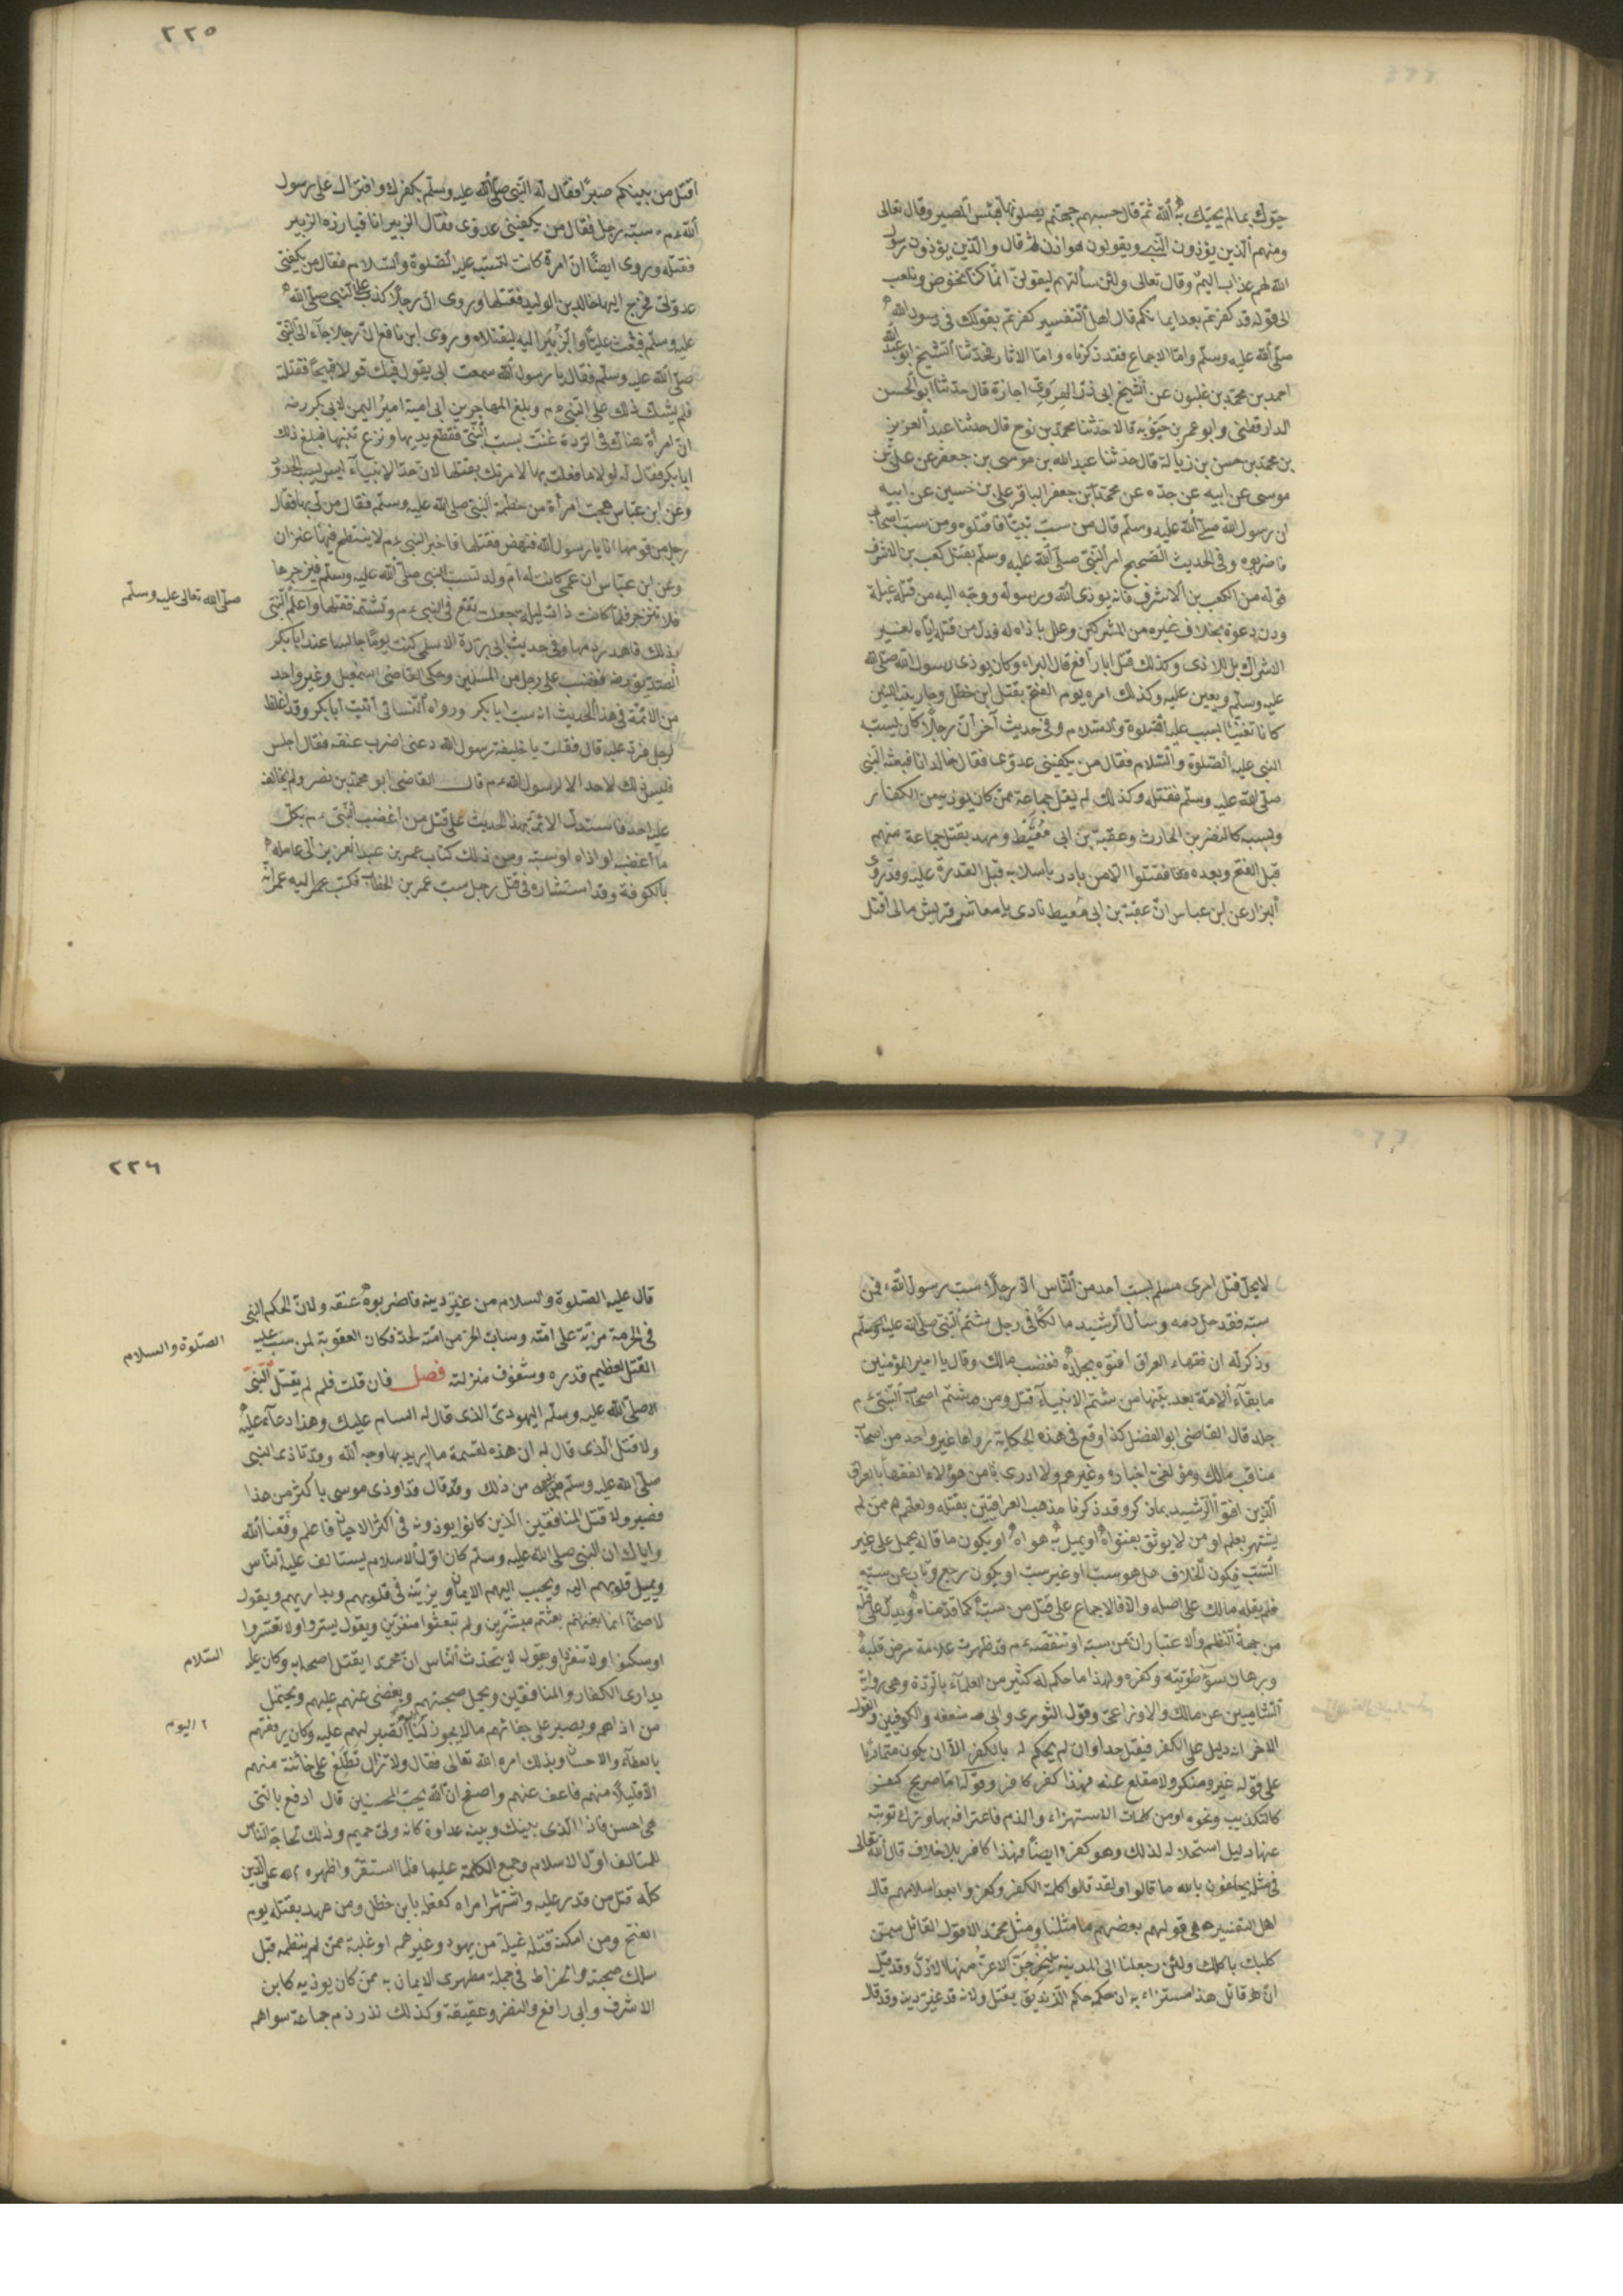 حيّوك بما لم يحيّك به الله ثمّ قال حسبهم جهنّم يصلونها فبئس المصير وقال تعالى
ومنهم الّذين يؤذون النّبي ويقولون هو اذن ثمّ قال والّذين يؤذون رسول
الله لهم عذاب اليم وقال تعالى ولئن سألتهم ليقولنّ انّما كنّا نخوض ونلعب
الى قوله قد كفرتم بعد ايمانكم قال اهل التفسير كفرتم بقولكم فى رسول الله
صلّى الله عليه وسلّم وامّا الاجماع فقد ذكرناه وامّا الاثار فحدّثنا الشيخ ابو عبد الله
احمد بن محمّد بن غلبون عن الشيخ ابى ذرّ الهروىّ اجازة قال حدّثنا ابو الحسن
الدارقطنى وابو عمر بن حيّويه قالا حدّثنا محمّد بن نوح قال حدثنا عبد العزيز
بن محمّد بن حسن بن زبالة قال حدثنا عبد الله بن موسى بن جعفر عن علىّ بن
موسى عن ابيه عن جدّه عن محمّد بن جعفر الباقر على بن حسين عن ابيه
ان رسول الله صلى الله عليه وسلّم قال من سبّ نبيّا فاقتلوه ومن سبّ اصحابى
فاضربوه وفى الحديث الصحيح امر النّبىّ صلّى الله عليه وسلّم بقتل كعب بن الاشرف
قوله من لكعب بن الاشرف فانه يوذى الله ورسوله ووجّه اليه من قتله غيلة
دون دعوة بخلاف غيره من المشركين وعلل باذاه له فدلّ من قتله ايّاه لغير
الاشراك بل للاذى وكذلك قتل ابا رافع قال البراء وكان يوذى رسول الله صلى الله
عليه وسلّم ويعين عليه وكذلك امره يوم الفتح بقتل ابن خطل وجاريتيه اللتين
كانتا تغنّيان بسبب عليه الصّلوة والسّلام وفى حديث آخر انّ رجلاً كان يسبّه
النبى عليه الصّلوة والسّلام فقال من يكفينى عدوّى فقال خالد انا فبعثه النّبى
صلّى الله عليه وسلّم فقتله وكذلك لم يقل جماعة ممّن كان يوذيه من الكفّار
ويسبه كالنضر بن الحارث وعقبة بن ابى مُعَيْط وعهد بقتل جماعة منهم
قبل الفتح وبعده فقتلوا الّا من بادر باسلامه قبل القدرة عليه وقد روى
البزار عن ابن عباس انّ عقبة بن ابى مُعيط نادى يا معاشر قريش مالى اقتل
٢٢٥
اقتل من بينكم صبرًا فقال له النّبى صلّى الله عليه وسلّم بكفرك وافترائك على رسول
الله ءم سبّه رجل فقال من يكفينى عدوّى فقال الزبير انا فبارزه الزبير
فقتله وروى ايضًا انّ امرة كانت تسبّه عليه الصّلوة والسّلام فقال من يكفنى
عدوّتى فخرج اليها خالد بن الوليد فقتلها وروى انّ رجلاً كذب على النّبى صلّى الله
عليه وسلّم فبعث عليّا والزّبير اليه ليقتلاه وروى ابن نافع انّ رجلا جاء الى النّبىّ
صلّى الله عليه وسلّم فقال يا رسول الله سمعت ابى يقول فيك قولا قبيحًا فقتلته
فلم يشكّ ذلك على النّبى ءم وبلغ المهاجر بن ابى امية امير اليمن لابى بكر رضه
انّ امرأة هناك فى الردة غنّت بسبّ النّبىّ فقطع يديها ونزع ثنيتها فبلغ ذلك
ابا بكر فقال له لولا ما فعلت بها لامرتك بقتلها لانّ حدّ الانبيآء ليس يشبه الحدود
وعن ابن عبّاس هجت امرأة من خطمة النبىّ صلى الله عليه وسلّم فقال من لى بها فقال
رجل من قومها انا يا رسول الله فنهض فقتلها فاخبر النبى ءم لا ينتطح فيها عنزان
وعن ابن عبّاس ان عمى كانت له امّ ولد تسبّ النبى صلّى الله عليه وسلّم فيزجرها
فلا تنزجر فلمّا كانت ذات ليلة جعلت تقع فى النبى ءم وتشتمه فقتلها واعلم النّبىّ
صلّى الله تعالى عليه وسلّم
بذلك فاهدر دمها وفى حديث ابى برزة الاسلمى كنت يومًا جالسا عند ابا بكر
الصّديق رضه فغضب على رجل من المسلمين وحكى القاضى اسمعيل وغير واحد
من الائمّة فى هذا الحديث انه سبّ ابا بكر ورواه النّسائى أتيت أبا بكر وقد اغلظ
لرجل فردّ عليه قال فقلت يا خليفة رسول الله دعنى اضرب عنقه فقال اجلس
فليس ذلك لاحد الا لرسول الله ءم قال القاضى ابو محمّد بن نصر ولم يخالف
عليه احد فاستدلّ الائمّة بهذا الحديث على قتل من اغضب النّبى ءم بكلّ
ما اغضبه او اذاه او سبّه ومن ذلك كتاب عمر بن عبد العزيز الى عامله
بالكوفة وقد استشاره فى قتل رجل سب عمر بن الخطاب فكتب عمر اليه عمر انّه
لا يحلّ قتل امرى مسلم بسبّ أحد من النّاس الا رجلا سبّ رسول الله فمن
سبّه فقد حلّ دمه وسأل الرشيد مالكًا فى رجل شتم النّبىّ صلّى الله عليه وسلّم
وذكر له ان فقهاء العراق افتوه بجلده فغضب مالك وقال يا امير المؤمنين
ما بقآء الامّة بعد نبيّها من شتم الانبيآء قتل ومن شتم اصحاب النّبىّ ءم
جلد قال القاضى ابو الفضل كذا وقع فى هذه الحكاية رواها غير واحد من اصحاب
مناقب مالك ومؤلفى اخباره وغيرهم ولا ادرى من هؤلاء الفقهاء بالعراق
الّذين افتوا الرّشيد بما ذكر وقد ذكرنا مذهب العراقيّين بقتله ولعلّهم ممّن لم
يشتهر بعلم او من لا يوثق بفتواه او يميل به هواه او يكون ما قاله يحمل على غير
السّبّ فيكون الخلاف هل هو سبّ او غير سبّ او يكون رجع وتاب عن سبّه
فلم يقله مالك على اصله والّا فالاجماع على قتل من سبّه كما قدّمناه ويدلّ على قتله
من جهة النظر والاعتبار انّ من سبّه او تنقّصه ءم قد ظهرت علامة مرض قلبه
وبرهان سوء طويّته وكفره ولهذا ما حكم له كثير من العلمآء بالرّدة وهى رواية
الشاميين عن مالك والاوزاعىّ وقول الثورى وابى حنيفه والكوفيين والقول
الاخر انه دليل على الكفر فيقتل حدا وان لم يحكم له بالكفر الّا ان يكون متماديًا
على قوله غير منكر ولا مقلع عنه فهذا كفر كافر وقوله امّا صريح كفر
كالتكذيب ونحوه او من كلمات الاستهزاء والذم فاعترافه بها وترك توبته
عنها دليل استحلاله لذلك وهو كفر ايضًا فهذا كافر بلا خلاف قال الله تعالى
فى مثله يحلفون بالله ما قالوا ولقد قالوا كلمة الكفر وكفروا بعد اسلامهم قال
اهل التفسير هى قولهم بعضهم ما مثلنا ومثل محمّد الا قول القائل سمّن
كلبك يأكلك ولئن رجعنا الى المدينة ليُخْرِجَنّ الاعزّ منها الاذلّ وقد قيل
انّ قائل هذا مستزاء به ان حكمه حكم الزّنديق يقتل ولانه قد غيّر دينه وقد قال
٢٢٦
قال عليه الصّلوة والسلام من غيّر دينه فاضربوا عنقه ولانّ لحكم النبى
فى الحرمة مزيّة على امّته وسابّ الحرّ من امّته يحدّ فكان العقوبة لمن سبّ عليه
الصّلوة والسلام
القتل لعظيم قدره وشفوف منزلته فصل فان قلت فلم لم يقتل النّبىّ
صلّى الله عليه وسلّم اليهودىّ الذى قال له السام عليك وهذا دعآء عليه
ولا قتل الّذى قال له ان هذه لقسمة ما اريد بها وجه الله وقد تاذى النبى
صلّى الله عليه وسلّم من ذلك وقد قال قد اوذى موسى باكثر من هذا
فصبر ولا قتل المنافقين الّذين كانوا يوذونه فى اكثر الاحيان فاعلم وفّقنا الله
واياك ان النبى صلى الله عليه وسلم كان اوّل الاسلام يستالف عليه النّاس
ويميل قلوبهم اليه ويحبب اليهم الايمان ويزيّنه فى قلوبهم ويداريهم ويقول
لاصحابه انما بعثتم مبشّرين ولم تبعثوا منفرّين ويقول يسّروا ولا تعسّروا
وسكّنوا ولا تنفّروا ويقول لا يتحدّث النّاس انّ محمّدا يقتل اصحابه وكان عليه
السّلام
يدارى الكفار والمنافقين ويجمل صحبتهم ويغضى عنهم عليهم ويحتمل
من اذاهم ويصبر على جفائهم ما لا يجوز لنا الصّبر لهم عليه وكان يرفقهم
اليوم
بالعطآء والاحسان وبذلك امره الله تعالى فقال ولا تزال تطّلع على خائنة منهم
الّا قليلاً منهم فاعف عنهم واصفح انّ الله يحبّ المحسنين قال ادفع بالّتى
هى احسن فاذا الّذى بينك وبينه عداوة كانه ولىّ حميم وذلك لحاجة النّاس
للتّالف اوّل الاسلام وجمع الكلمة عليها فلما استقرّ واظهره الله على الدّين
كلّه قتل من قدر عليه واشتهر امره كفعله بابن خطل ومن عهد بقتله يوم
الفتح ومن امكنه قتله غيلة من يهود وغيرهم او غلبة ممّن لم ينظمه قبل
سلك صحبته وانخراط فى جملة مظهرى الايمان به ممّن كان يوذيه كابن
الاشرف وابى رافع والنضر وعقبة وكذلك نذر دم جماعة سواهم